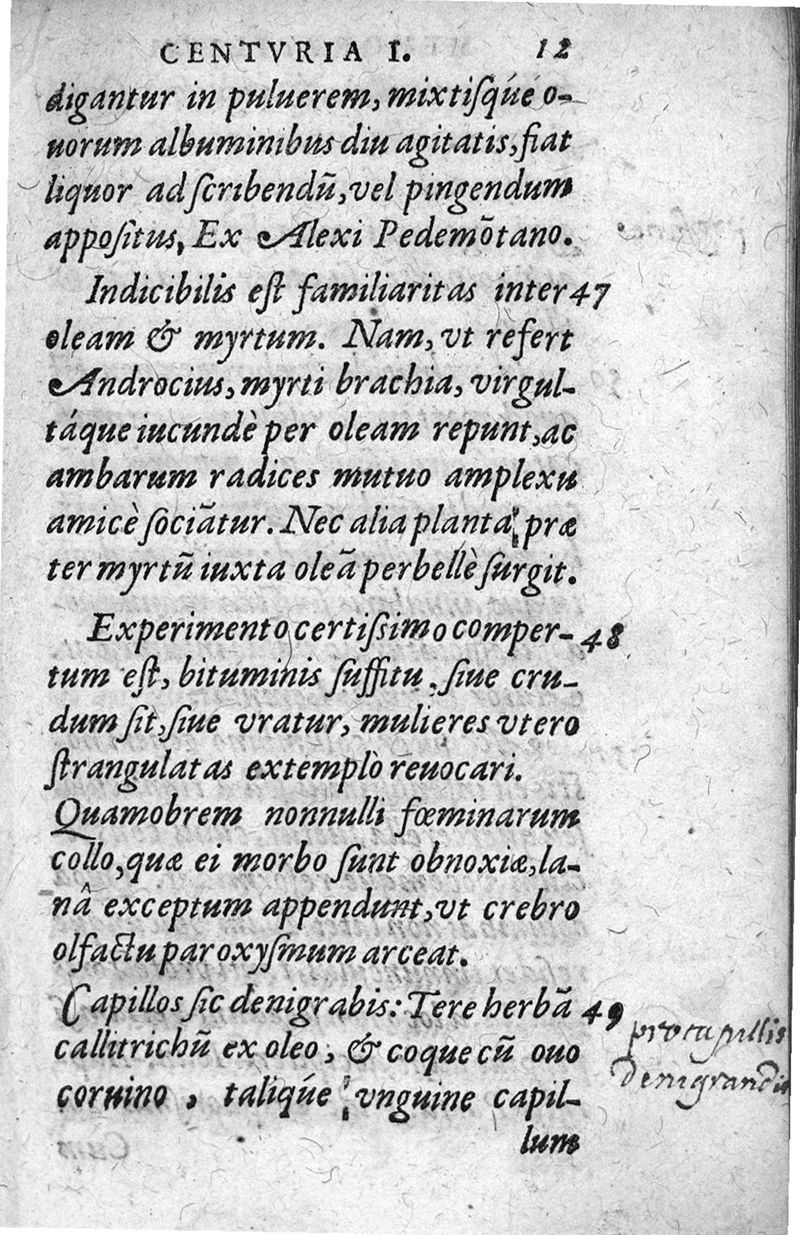 CENTVRIA I. 12
digantur in puluerem, mixtiſq́ue o-
uorum albuminibus diu agitatis, fiat
liquor ad ſcribendũ, vel pingendum
appoſitus, Ex Alexi Pedemõtano.
Indicibilis eſt familiaritas inter 47
oleam & myrtum. Nam, vt refert
Androcius, myrti brachia, virgul-
táque iucundè per oleam repunt, ac
ambarum radices mutuo amplexu
amicè ſociãtur. Nec alia planta præ
ter myrtũ iuxta oleã perbellè ſurgit.
Experimento certiſsimo comper- 48
tum eſt, bituminis ſuffitu, ſiue cru-
dum ſit, ſiue vratur, mulieres vtero
ſtrangulatas extemplò reuocari.
Quamobrem nonnulli fœminarum
collo, quæ ei morbo ſunt obnoxiæ, la-
nâ exceptum appendunt, vt crebro
olfactu paroxyſmum arceat.
Capillos ſic denigrabis: Tere herbã 49
callitrichũ ex oleo, & coque cũ ouo
coruino, taliq́ue vnguine capil-
lum
pro capillis
denigrandis